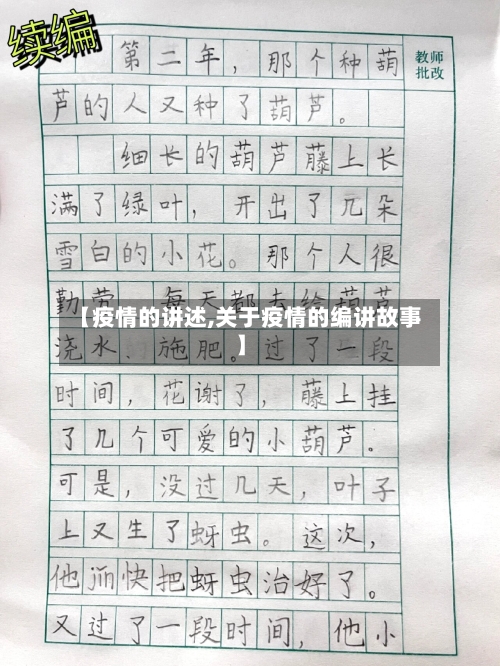 续编
第二年，那个种葫
教师
批改
芦的人又种了葫芦。
细长的葫芦藤上长
满了绿叶，开出了几朵
雪白的小花。那个人很
勤劳，每天都去给葫芦
【疫情的讲述,关于疫情的编讲故事
】
浇水、施肥。过了一段
时间，花谢了，藤上挂
了几个可爱的小葫芦。
可是，没过几天，叶子
上又生了蚜虫。这次，
他连忙快把蚜虫治好了。
又过了一段时间，他小